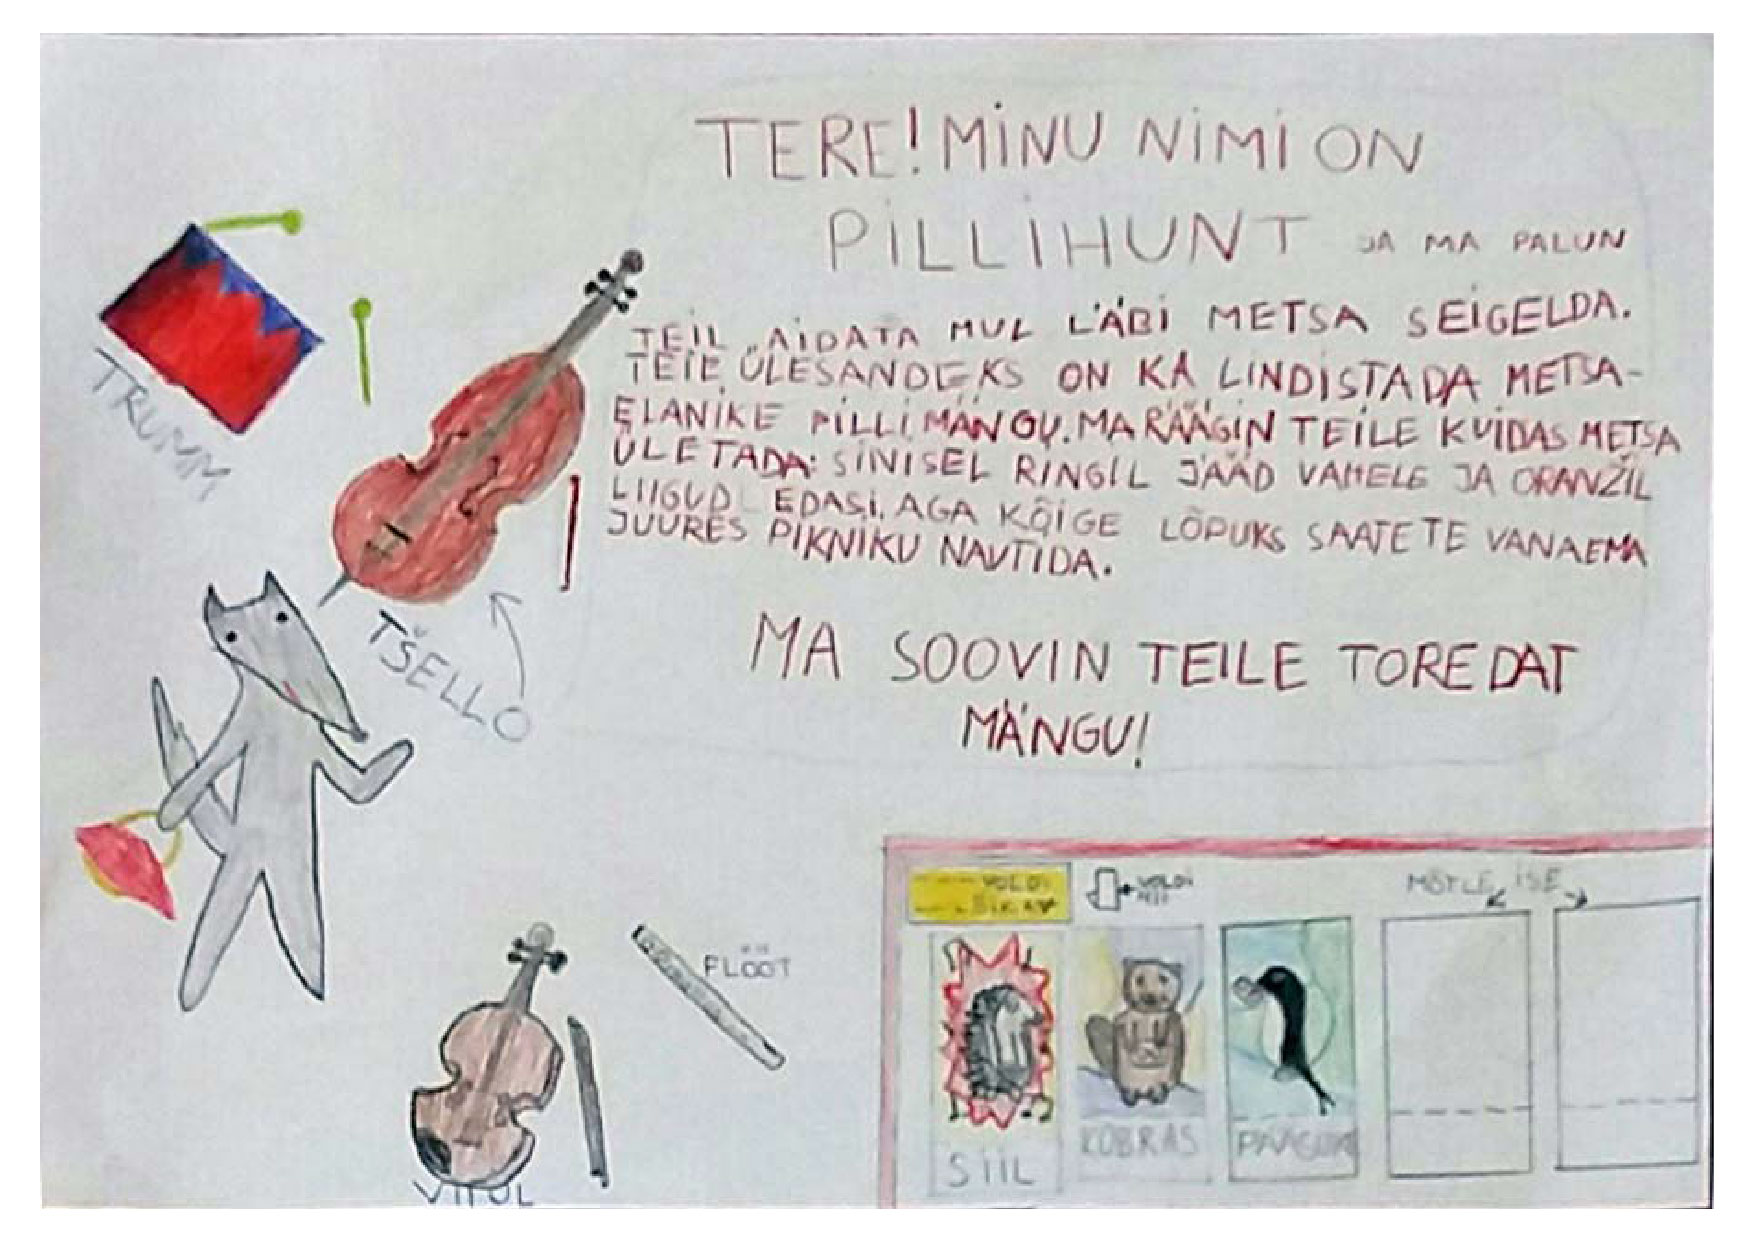 TERE! MINU NIMI ON
PILLIHUNT JA MA PALUN
TEIL AIDATA MUL LÄBI METSA SEIGELDA.
TEIE ÜLESANDEKS ON KA LINDISTADA METSA-
ELANIKE PILLIMÄNGU. MA RÄÄGIN TEILE KUIDAS METSA
ÜLETADA: SINISEL RINGIL JÄÄD VAHELE JA ORANŽIL
LIIGUD EDASI. AGA KÕIGE LÕPUKS SAATE TE VANAEMA
JUURES PIKNIKU NAUTIDA.
MA SOOVIN TEILE TOREDAT
MÄNGU!
TRUMM
TŠELLO
FLÖÖT
VIIUL
VOLDI
VOLDI
MÕTLE ISE
SIIL
KOBRAS